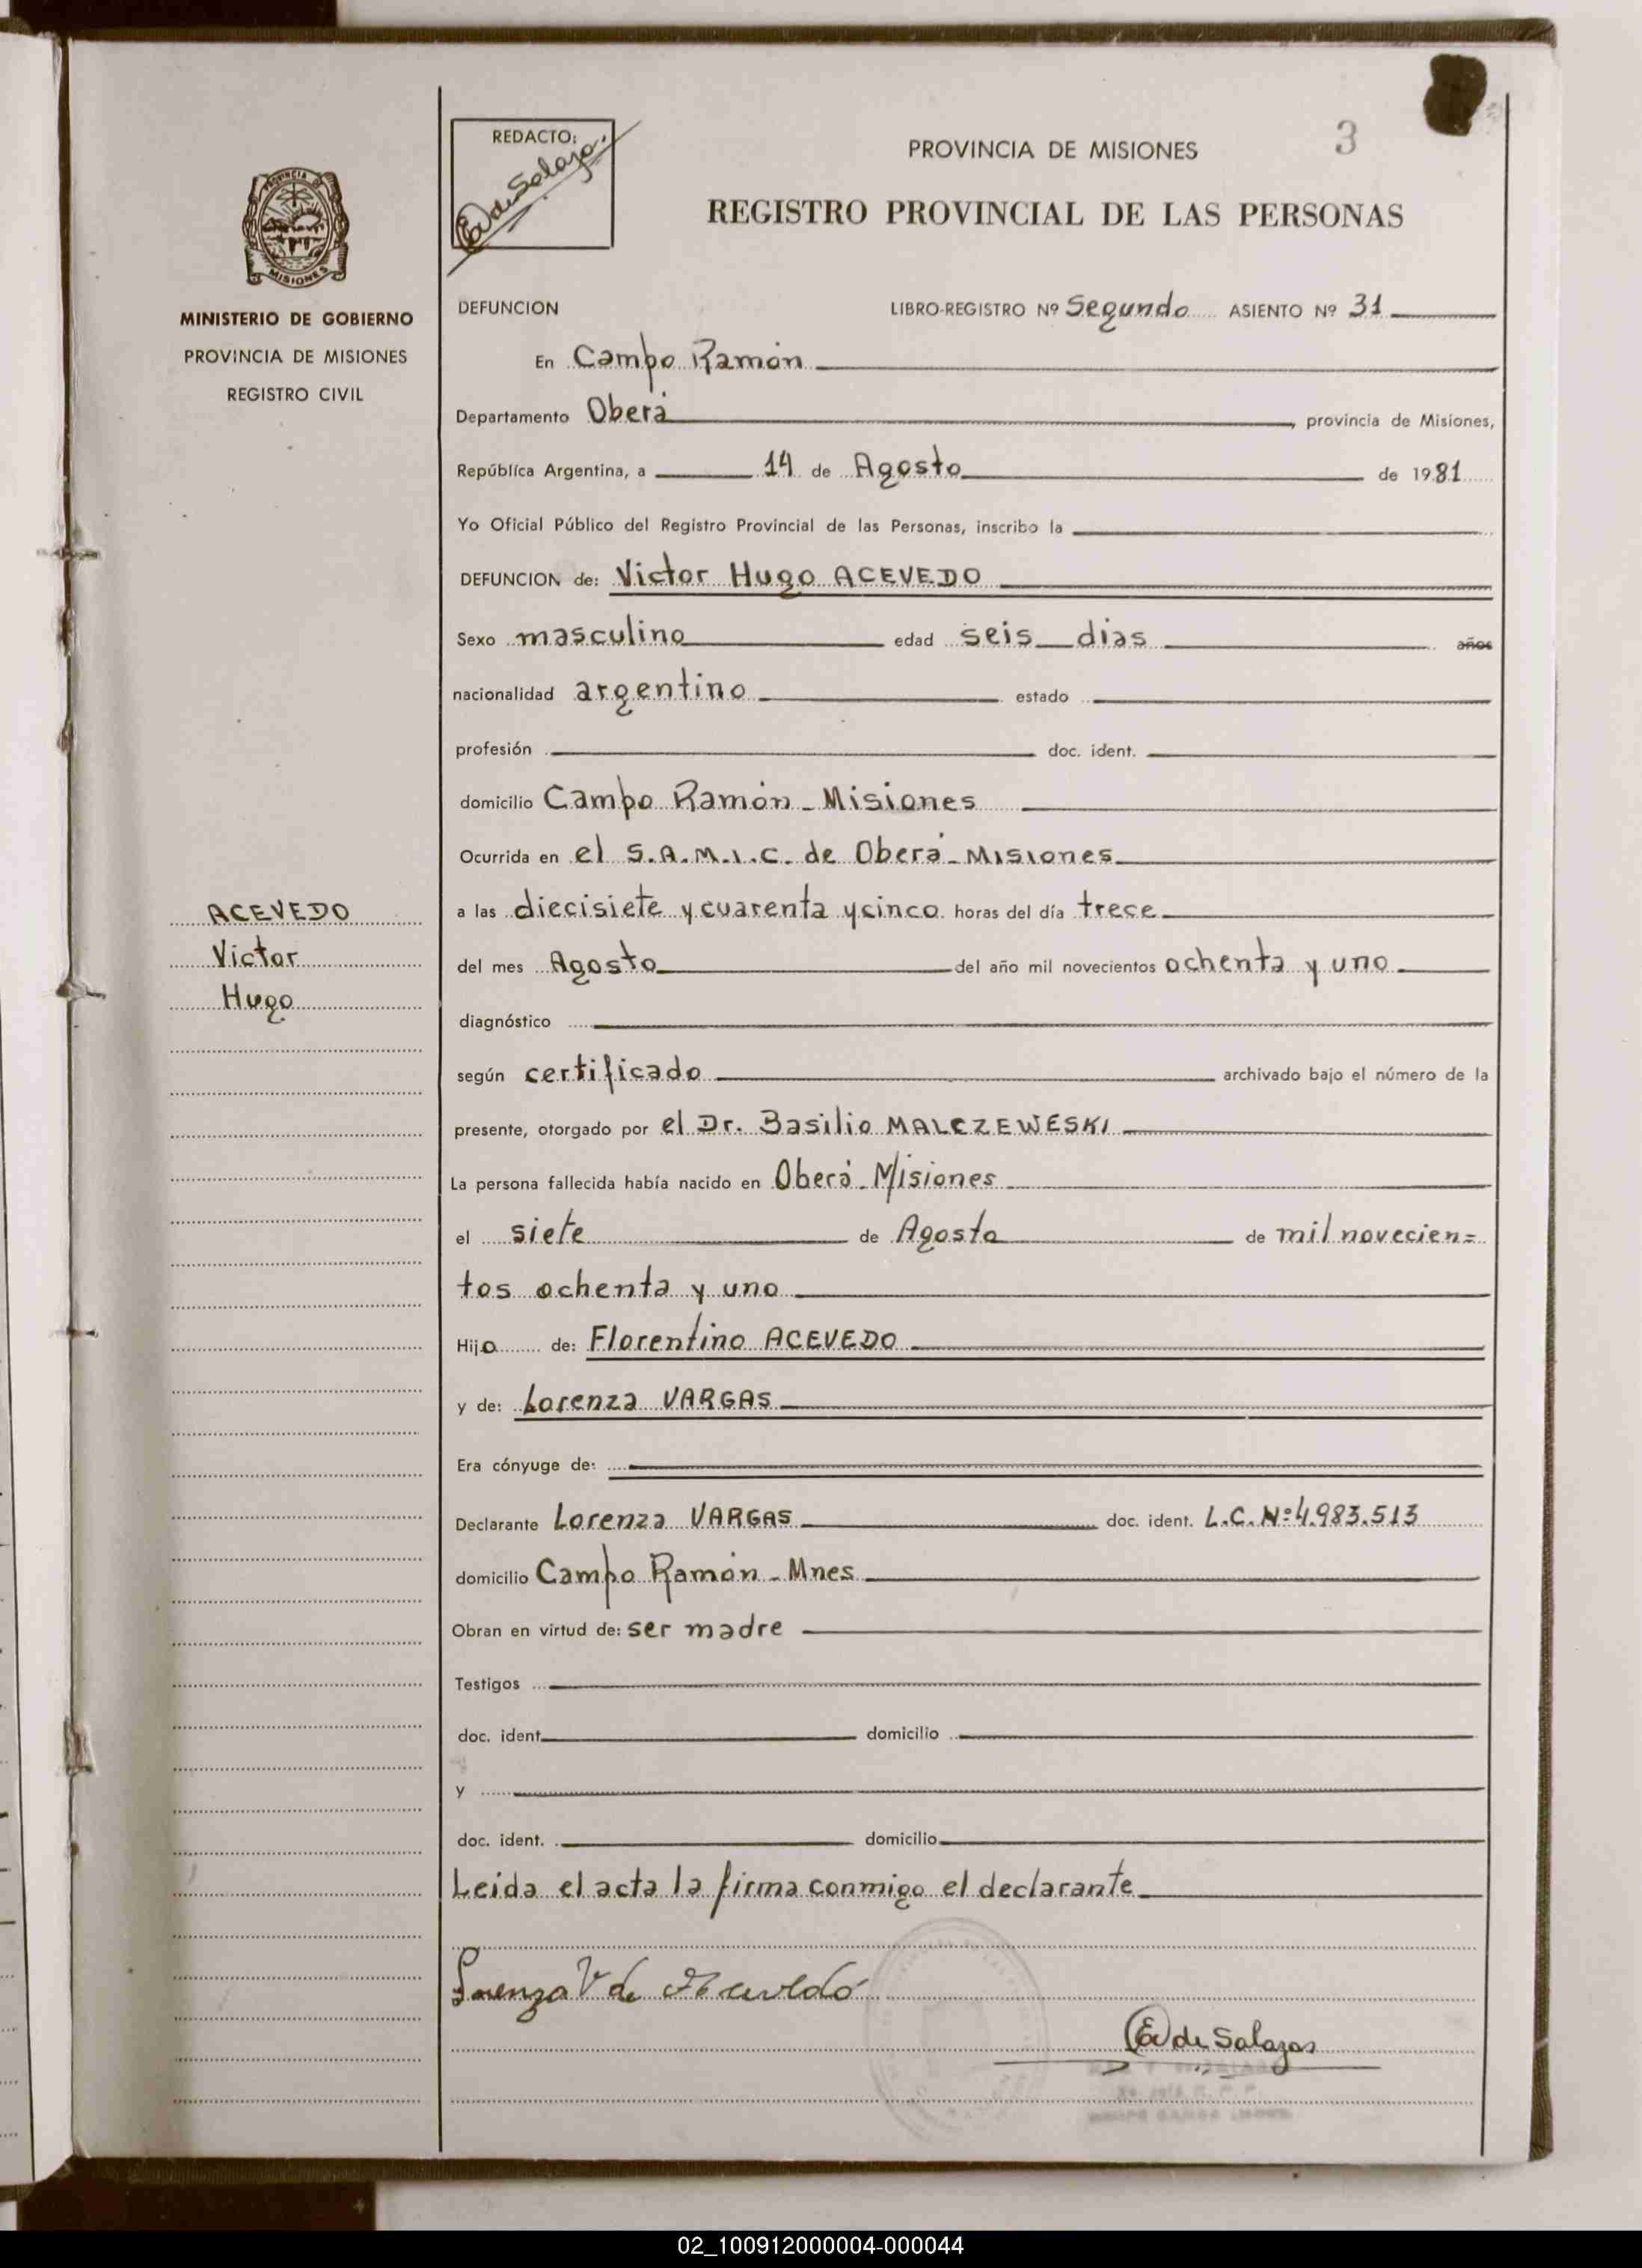 3
REDACTO:
EV de Salazar
PROVINCIA DE MISIONES
REGISTRO PROVINCIAL DE LAS PERSONAS
PROVINCIA DE
MISIONES
MINISTERIO DE GOBIERNO
PROVINCIA DE MISIONES
REGISTRO CIVIL
DEFUNCION LIBRO-REGISTRO Nº Segundo ASIENTO Nº 31
En Campo Ramón
Departamento Oberá, provincia de Misiones,
República Argentina, a 14 de Agosto de 1981
Yo Oficial Público del Registro Provincial de las Personas, inscribo la
DEFUNCION de: Victor Hugo ACEVEDO
Sexo masculino edad seis dias años
nacionalidad argentino estado
profesión doc. ident.
domicilio Campo Ramón - Misiones
Ocurrida en el S.A.M.I.C. de Oberá - Misiones
ACEVEDO
Victor
Hugo
a las diecisiete y cuarenta y cinco horas del día trece
del mes Agosto del año mil novecientos ochenta y uno
diagnóstico
según certificado archivado bajo el número de la
presente, otorgado por el Dr. Basilio MALCZEWESKI
La persona fallecida había nacido en Oberá - Misiones
el siete de Agosto de mil novecien=
tos ochenta y uno
Hijo de: Florentino ACEVEDO
y de: Lorenza VARGAS
Era cónyuge de:
Declarante Lorenza VARGAS doc. ident. L.C. Nº 4.983.513
domicilio Campo Ramón - Mnes
Obran en virtud de: ser madre
Testigos
doc. ident. domicilio
y
doc. ident. domicilio
Leida el acta la firma conmigo el declarante
Lorenza V de Acevedo
EV de Salazar
02_100912000004-000044